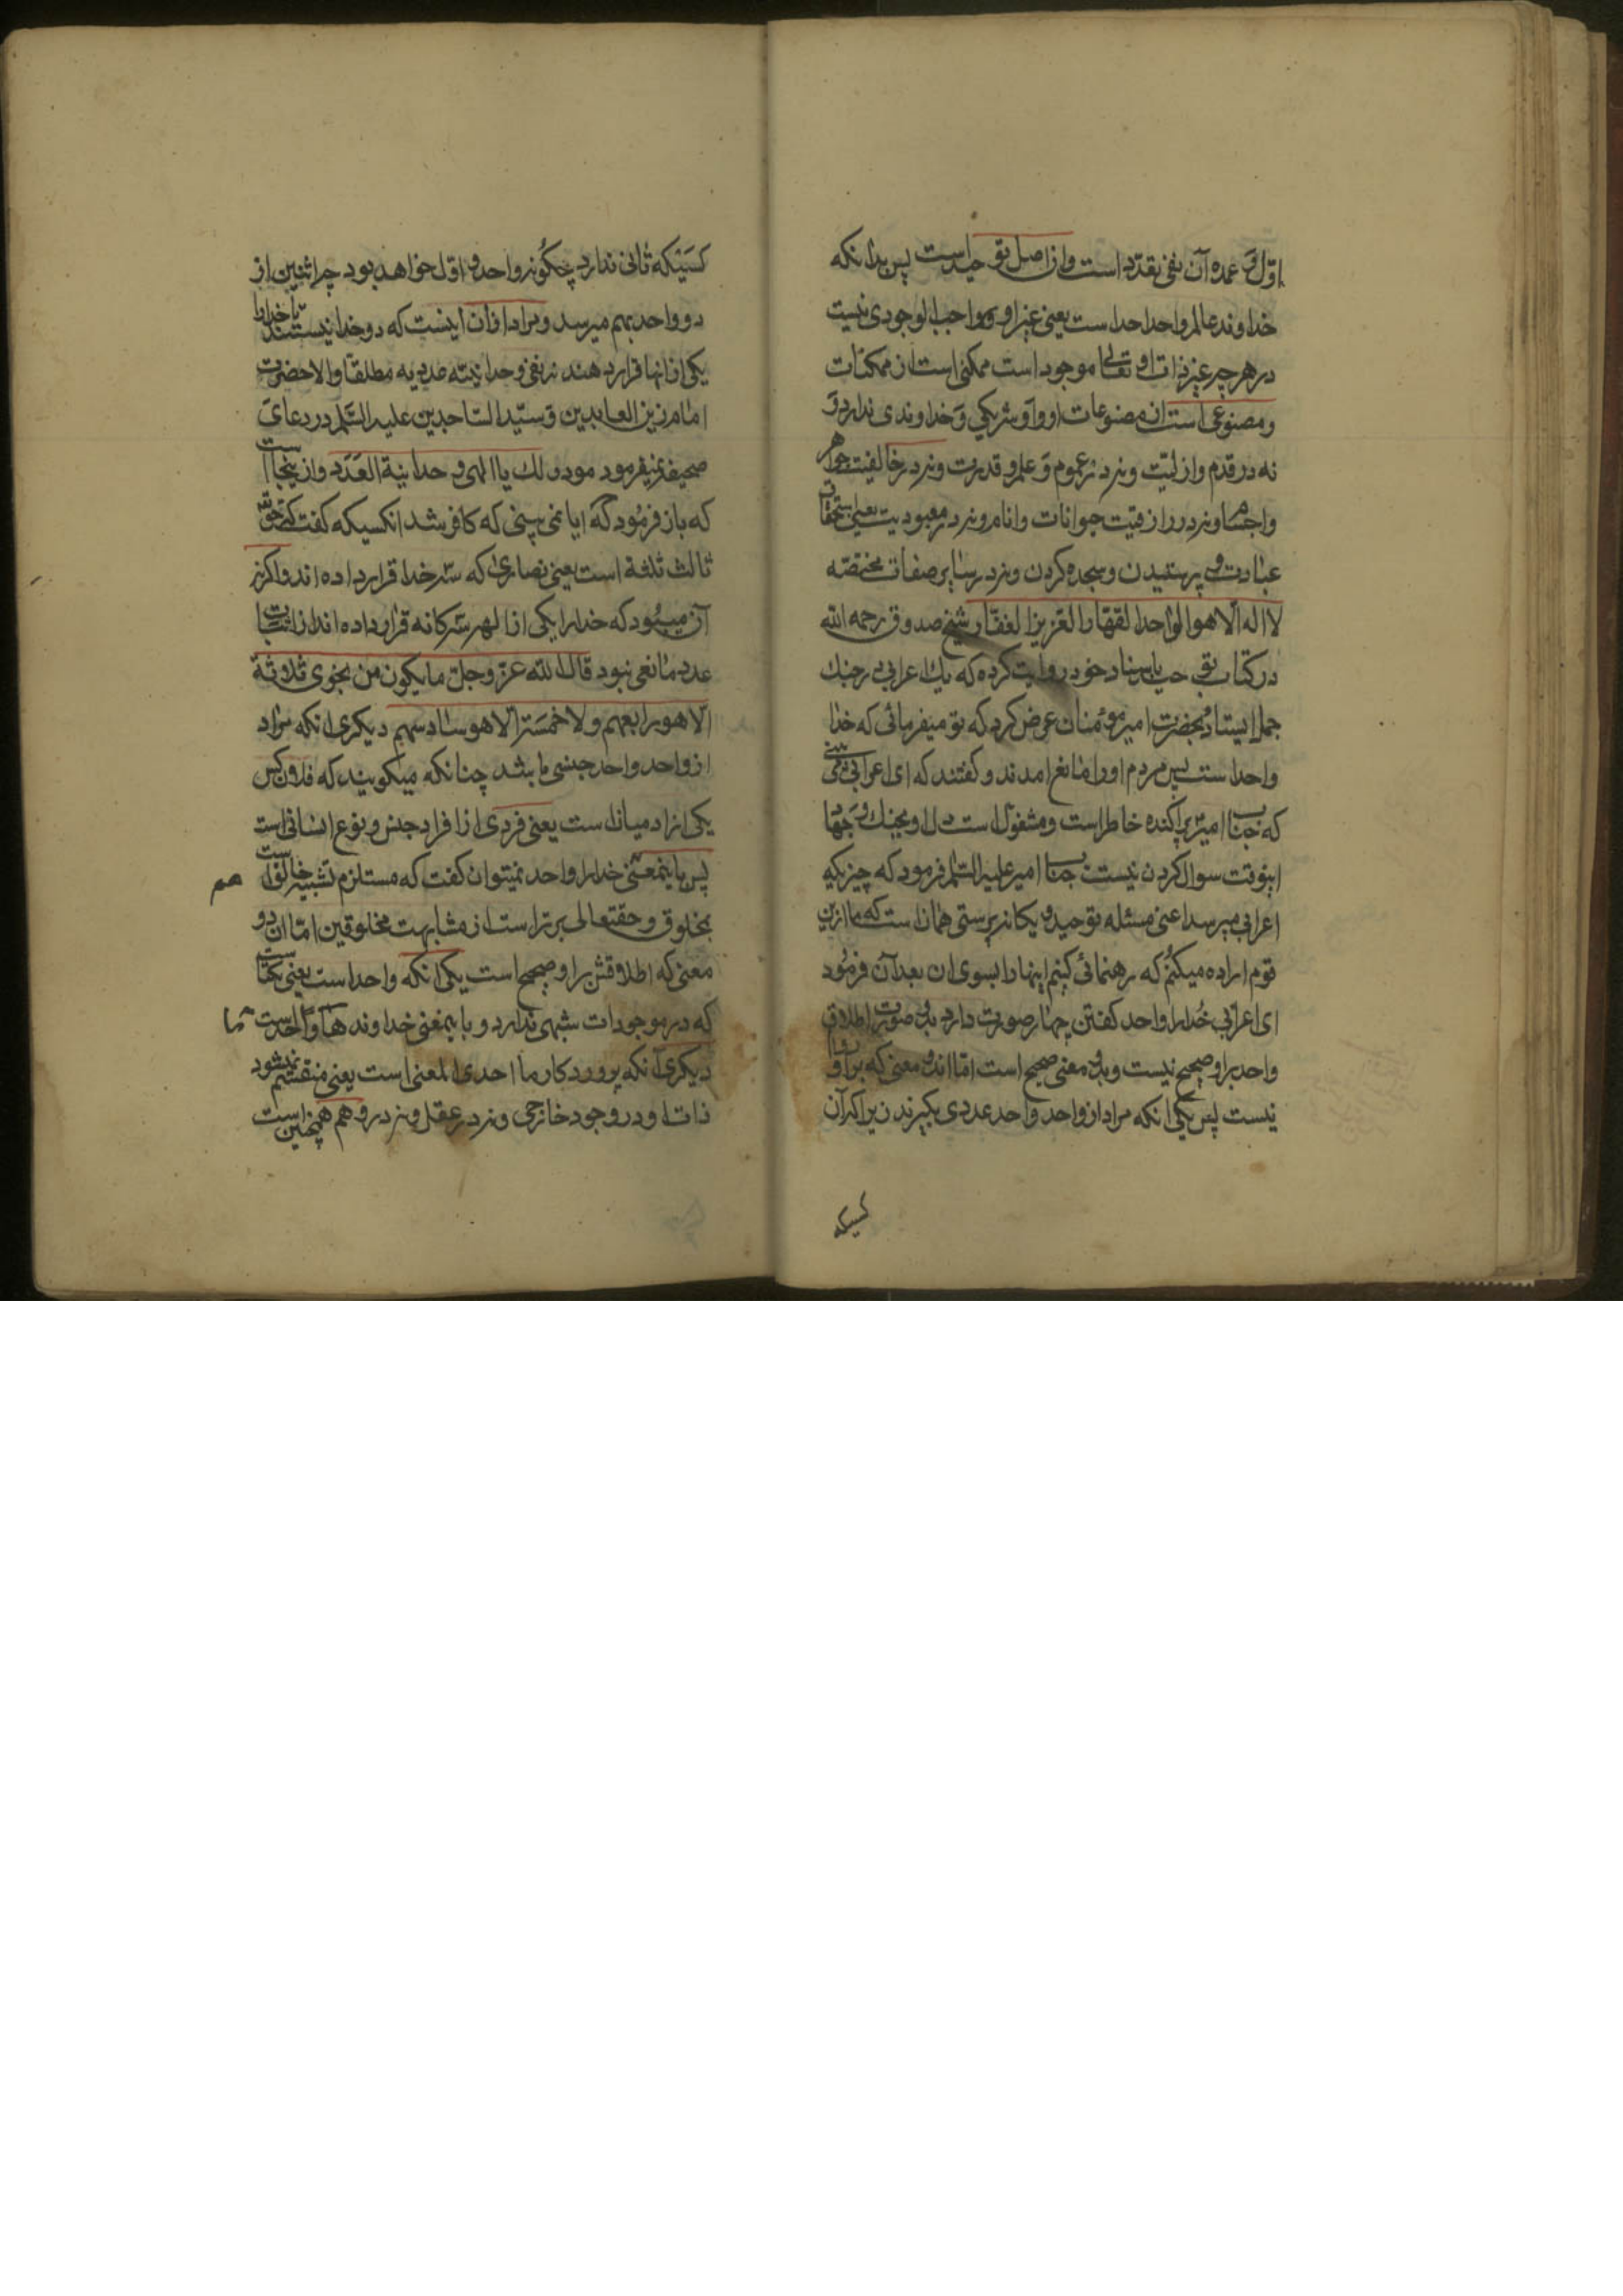 اول و عمده آن نفی تعدد است و از اصل توحید است پس بدانکه
خداوند عالم واحد احد است یعنی غیر او واجب الوجودی نیست
در هر چه غیر ذات او تعالی موجود است ممکنی است از ممکنات
و مصنوعی است از مصنوعات او و او شریکی و خداوندی ندارد و
نه در قدم و ازلیت و نه در عموم و علم و قدرت و نه در خالقیت جواهر
و اجسام و نه در رازقیت حیوانات و انام و نه در معبودیت یعنی استحقاق
عبادت و پرستیدن و سجده کردن و نه در سایر صفات مختصه
لا اله الا هو الواحد القهار العزیز الغفار شیخ صدوق رحمه الله
در کتاب توحید باسناد خود روایت کرده که یک اعرابی در جنک
جمل ایستاد بحضرت امیر مؤمنان عرض کرد که تو میفرمائی که خدا
واحد است پس مردم او را مانع امدند و کفتند که ای اعرابی نمی بینی
که جناب امیر پراکنده خاطر است و مشغول است دل او بجنک و جهاد
اینوقت سوال کردن نیست جناب امیر علیه السلم فرمود که چیزیکه
اعرابی میپرسد اعنی مسئله توحید و یکانه پرستی همان است که ما ازین
قوم اراده میکنم که رهنمائی کنیم اینها را بسوی ان بعد آن فرمود
ای اعرابی خدا را واحد کفتن چهار صورت دارد بدو صورت اطلاق
واحد براو صحیح نیست و بدو معنی صحیح است اما اندو معنی که براو روا
نیست پس یکی انکه مراد از واحد واحد عددی بکیرند زیرا که آن
کسیکه
کسیکه ثانی ندارد چکونه واحد و اول خواهد بود چرا اثنین از
دو واحد بهم میرسد و مراد از آن اینست که دو خدا نیستند تا خدا را
یکی از انها قرار دهند نه نفی وحدانیته عددیه مطلقا والا حضرت
امام زین العابدین و سید الساجدین علیه السلم در دعای
صحیفه نمیفرمود لک یا الهی وحدانیة العدد و از ینجا است
که باز فرمود که ایا نمی بینی که کافر شد انکسیکه کفت که حق
ثالث ثلثة است یعنی نصاری که سه خدا قرار داده اند و اکر نه
آن میبود که خدا را یکی از الهه سه کانه قرار داده اند از اثبات
عدد مانعی نبود قال الله عز و جل ما یکون من نجوی ثلاثة
الا هو رابعهم ولا خمسة الا هو سادسهم دیکری انکه مراد
از واحد واحد جنسی باشد چنانکه میکویند که فلان کس
یکی از ادمیان است یعنی فردی از افراد جنس و نوع انسانی است
پس باینمعنی خدا را واحد نمیتوان کفت که مستلزم تشبیه خالق است
بمخلوق و حقتعالی برتر است از مشابهت مخلوقین اما ان دو
معنی که اطلاقش براو صحیح است یکی انکه واحد است یعنی یکتا است
که در موجودات شبهی ندارد و باینمعنی خداوند ما واحد است
دیکری آنکه پروردکار ما احدی المعنی است یعنی منقسم نمیشود
ذات او در وجود خارجی و نه در عقل و نه در وهم همچنین است